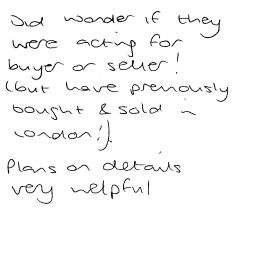 Did wonder if they
were acting for
buyer or seller!
(but have previously
bought & sold in
London!).
Plans on details
very helpful